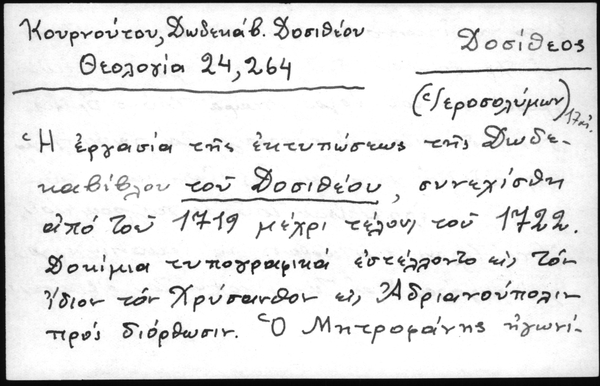 Κουρνούτου, Δωδεκάβ. Δοσιθέου
Θεολογία 24, 264
Δοσίθεος
(Ἱεροσολύμων) 17 αἰ.
Ἡ ἐργασία τῆς ἐκτυπώσεως τῆς Δωδε-
καβίβλου τοῦ Δοσιθέου, συνεχίσθη
ἀπό τοῦ 1719 μέχρι τέλους τοῦ 1722.
Δοκίμια τυπογραφικά ἐστέλλοντο εἰς τόν
ἴδιον τόν Χρύσανθον εἰς Ἀδριανούπολιν
πρός διόρθωσιν. Ὁ Μητροφάνης ἠγωνί-